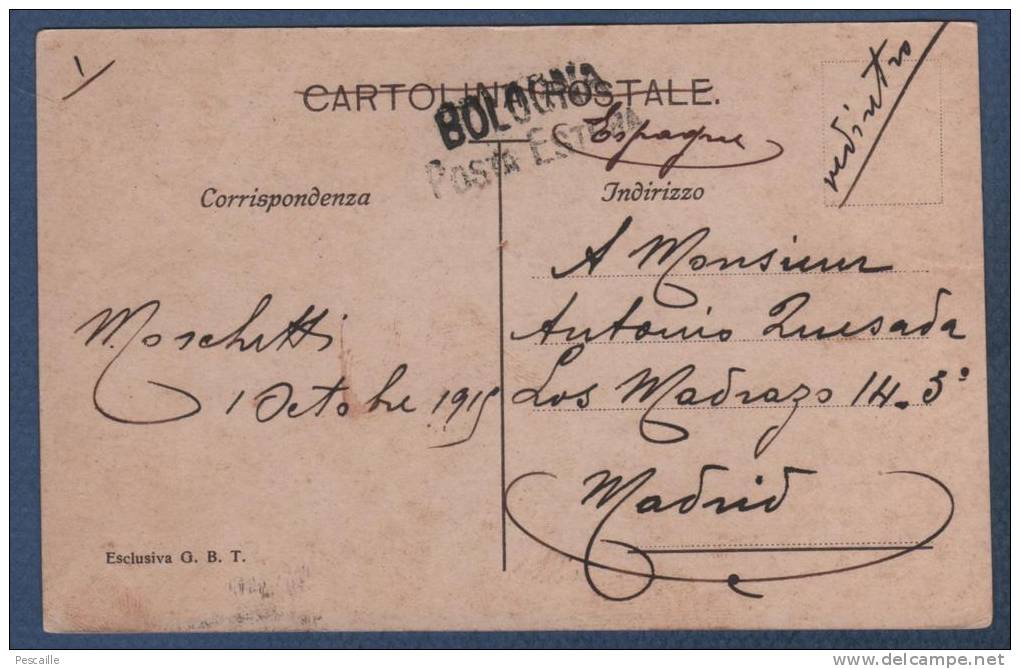 1
CARTOLINA POSTALE.
BOLOGNA
POSTA ESTERA
Espagne
vedi retro
Corrispondenza
Indirizzo
A Monsieur
Antonio Quesada
Los Madrazo 14-3°
Madrid
Moschetti
1 Octobre 1915
Esclusiva G. B. T.
Pescaille
www.delcampe.net